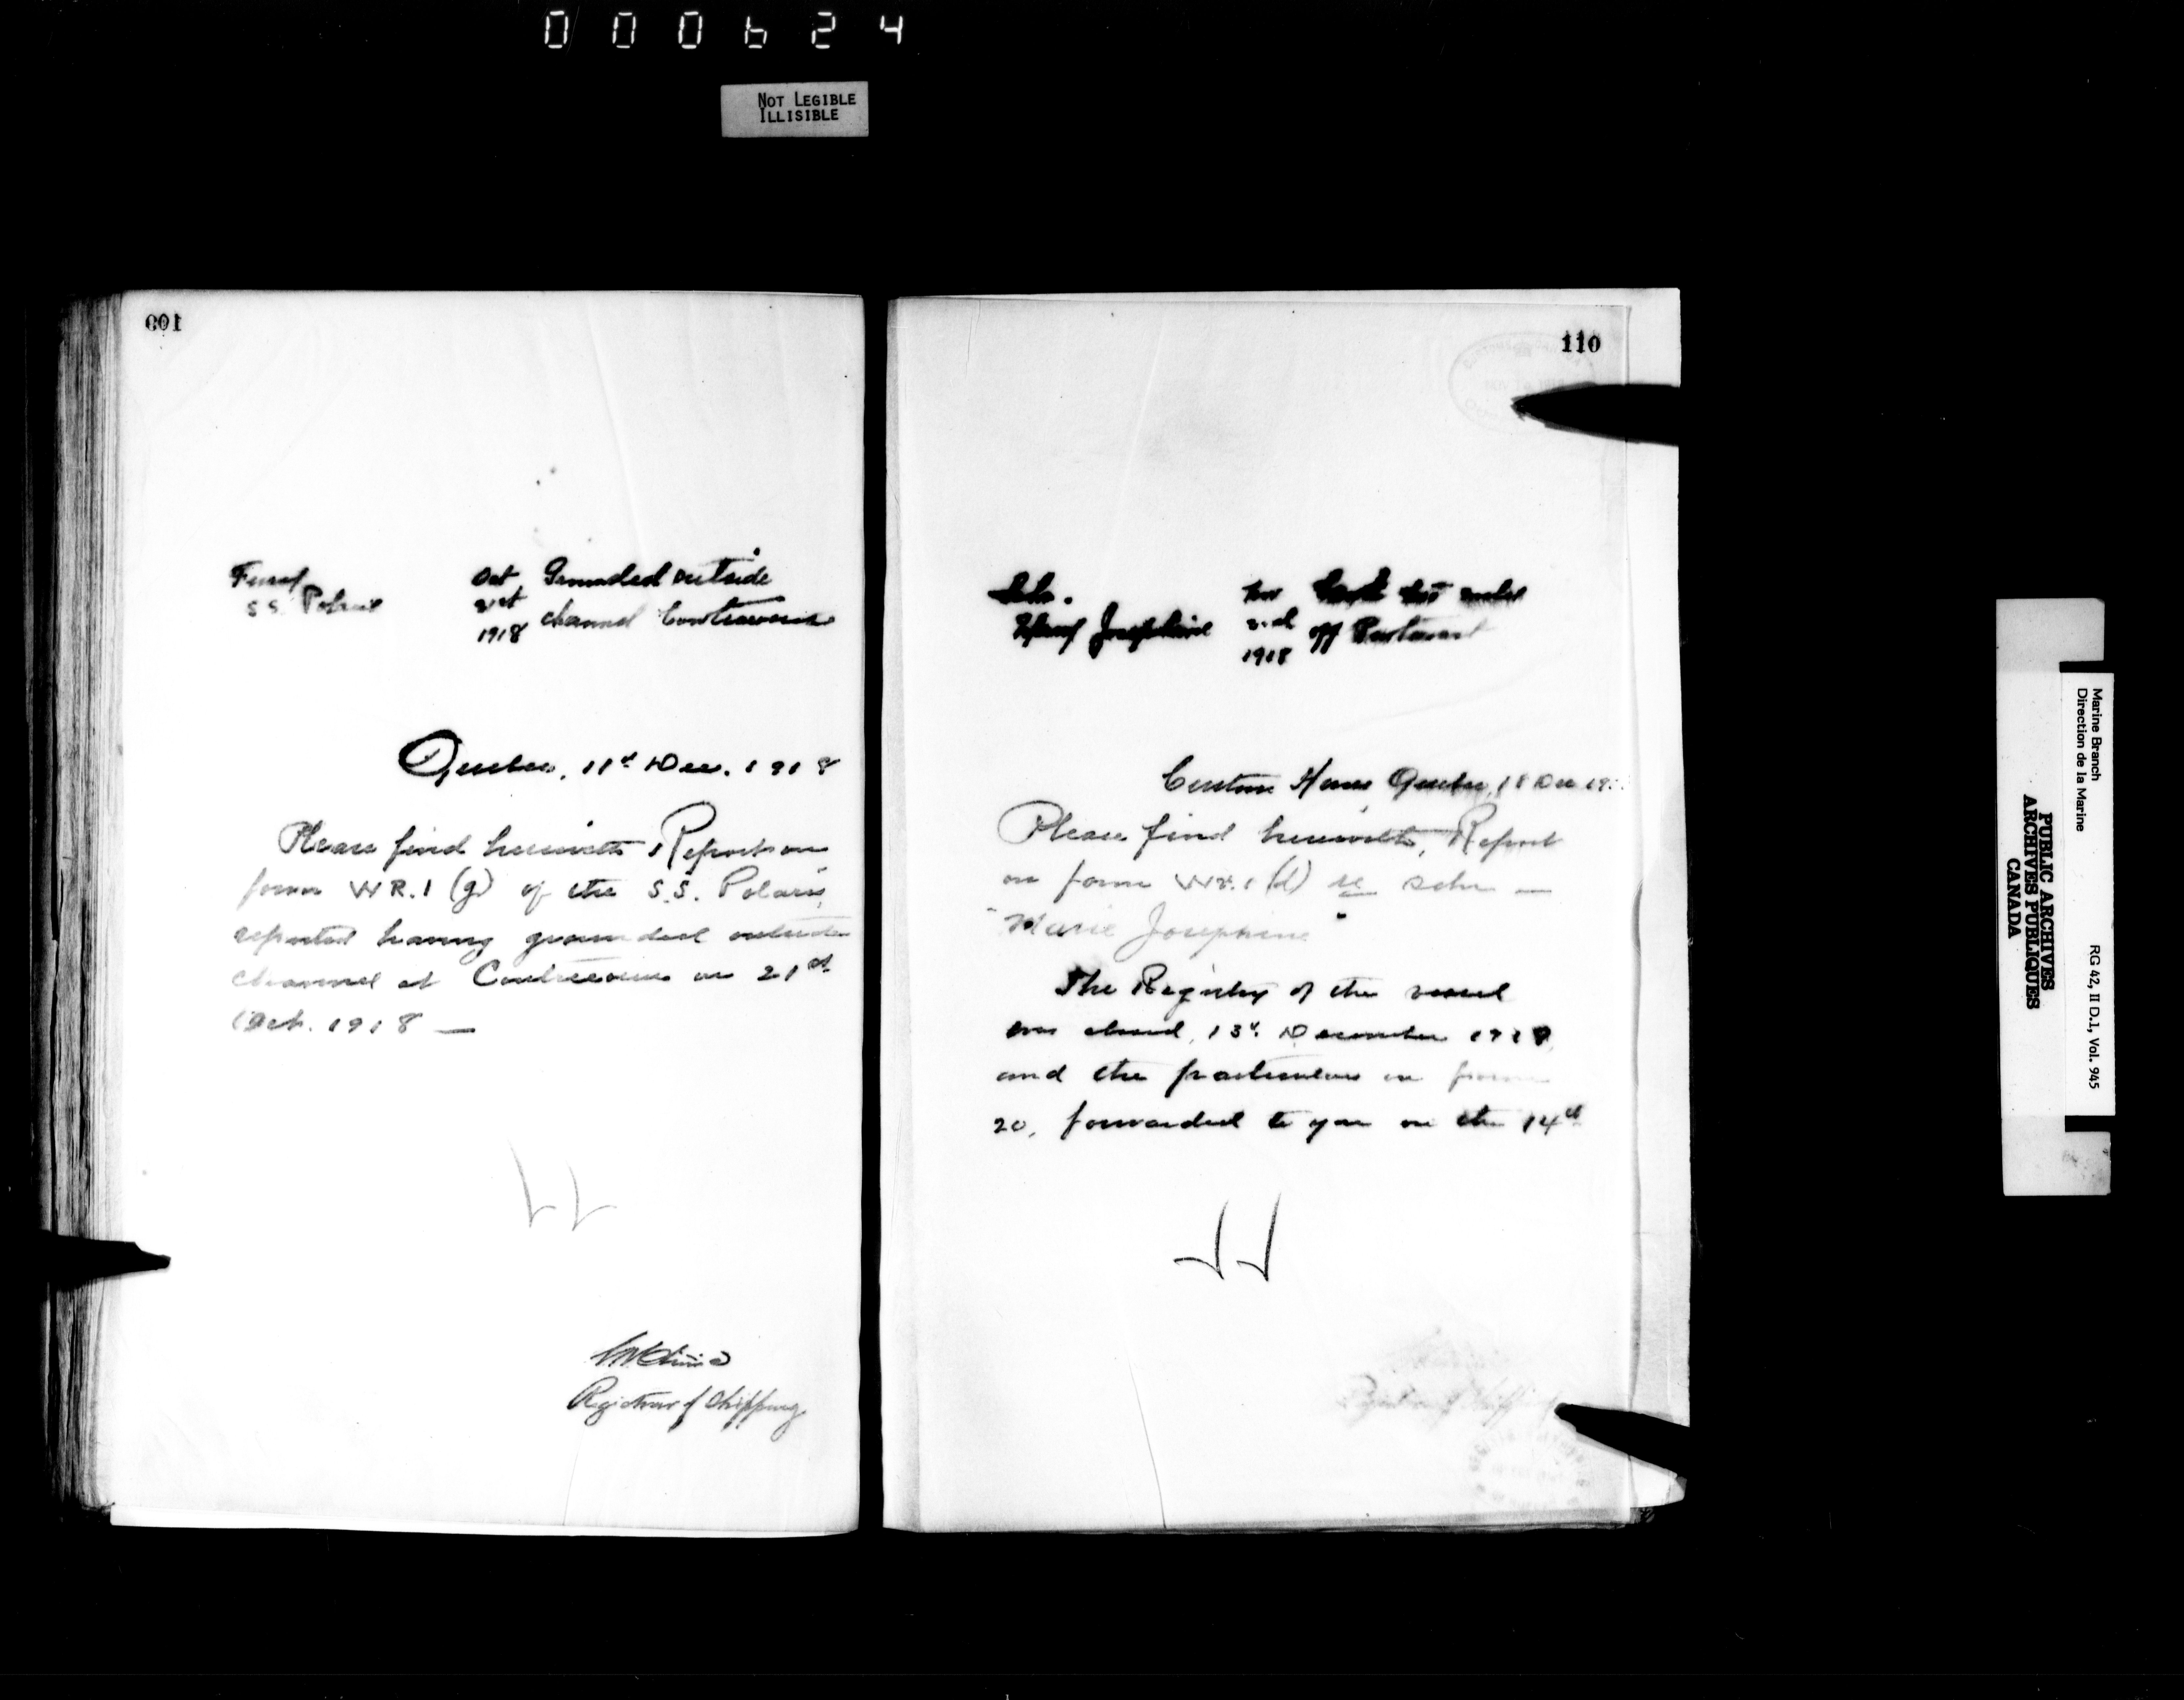 000624
NOT LEGIBLE
ILLISIBLE
109
S.S. Polaris
Oct. Grounded outside
21st channel Contrecoeur
1918
Quebec, 11th Dec. 1918
Please find herewith Report on
form WR.1 (g) of the S.S. Polaris,
reported having grounded outside
channel at Contrecoeur on 21st
Oct. 1918 —
Registrar of Shipping
110
Sch.
Marie Josephine
Nov
2nd off
1918
Custom House Quebec, 18 Dec 19
Please find herewith, Report
on form Wr.1 (d) re schr —
"Marie Josephine"
The Registry of the vessel
was closed, 13th December 1918,
and the particulars on form
20, forwarded to you on the 14th
Registrar of Shipping
Marine Branch
Direction de la Marine
RG 42, II D.1, Vol. 945
PUBLIC ARCHIVES
ARCHIVES PUBLIQUES
CANADA